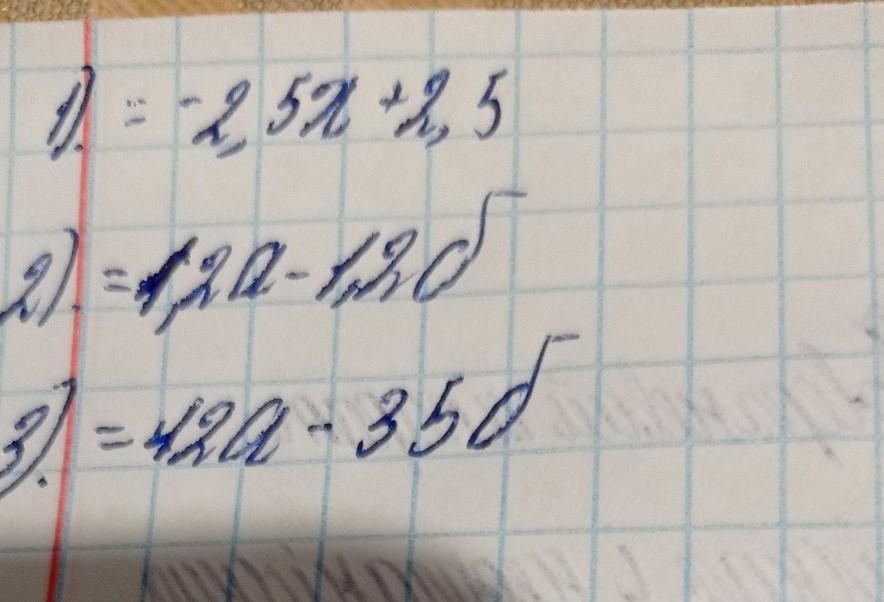 1). = -2,5x +2,5
2). = 1,2a - 1,2б
3). = 12a - 35б